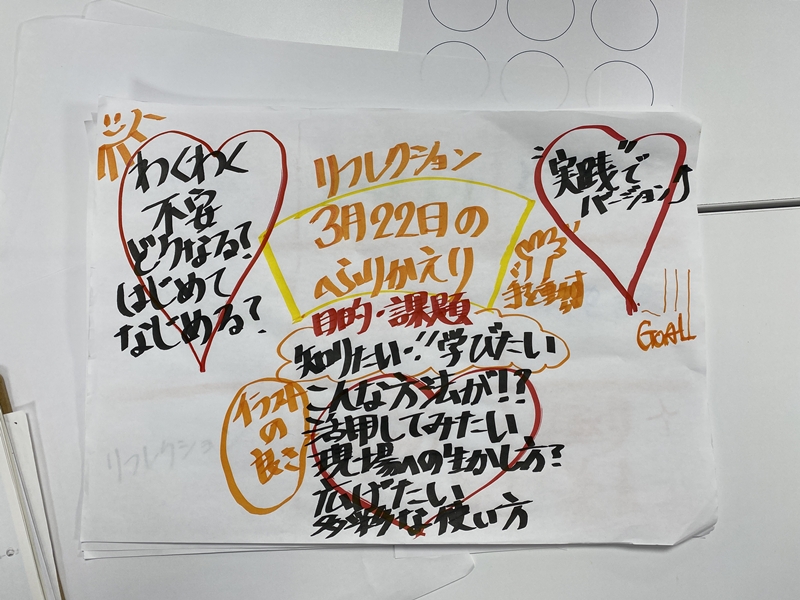 わくわく
不安
どうなる?
はじめて
なじめる?
リフレクション
3月22日の
ふりかえり
目的・課題
知りたい・!!学びたい
こんな方法が!?
活用してみたい
現場への生かし方?
広げたい
多彩な使い方
イラスト
の
良さ
"実践"で
バージョン↑
手を動かす
GOAL!
リフレクショ